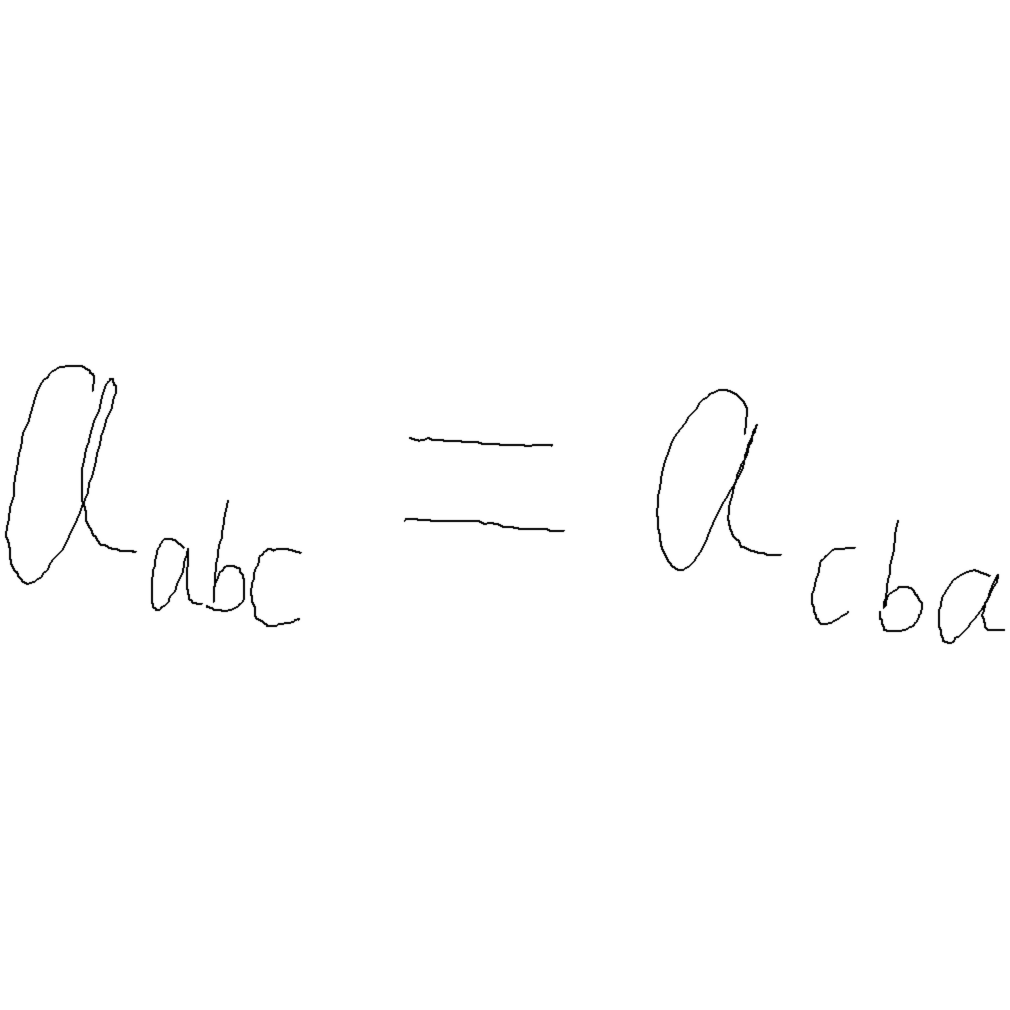 a_{abc} = a_{cba}